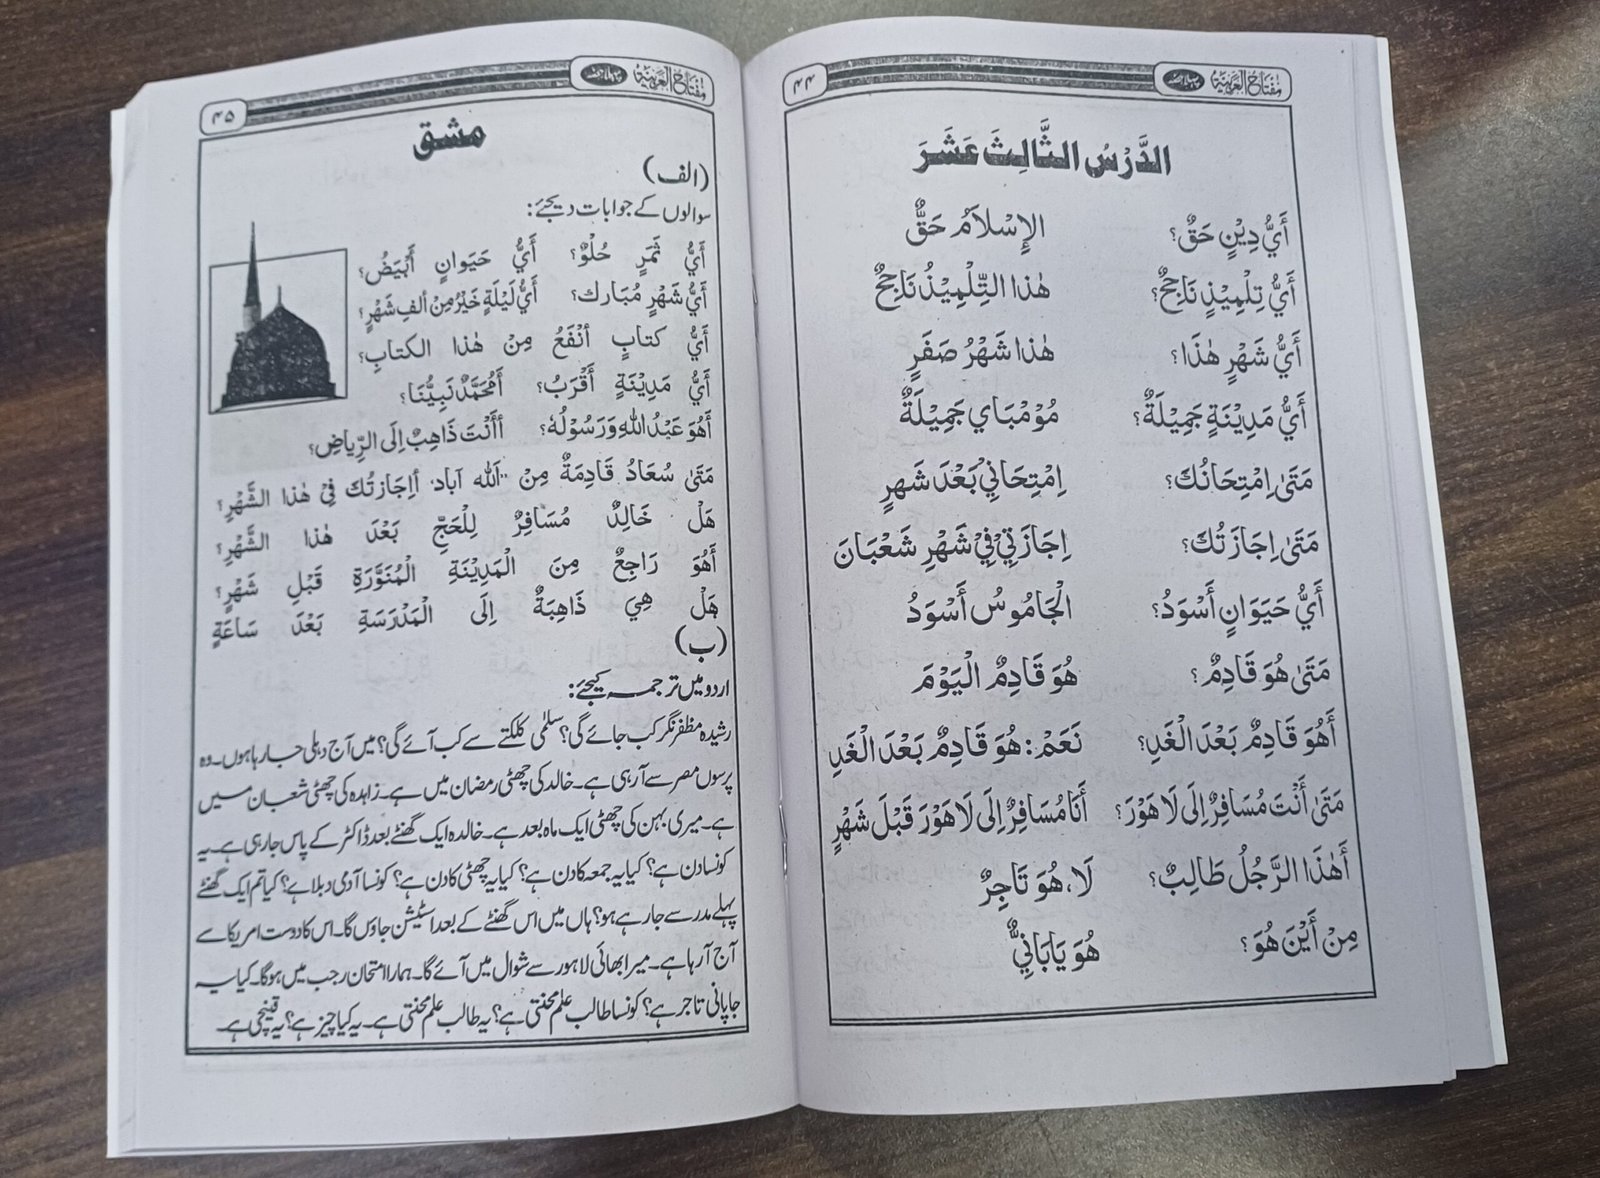 مفتاح العربية پہلا حصہ ۴۴
الدَّرْسُ الثَّالِثَ عَشَرَ
أَيُّ دِيْنٍ حَقٌ؟ الإِسْلاَمُ حَقٌّ
أَيُّ تِلْمِيْذٍ نَاجِحٌ؟ هٰذا التِّلْمِيْذُ نَاجِحٌ
أَيُّ شَهْرٍ هٰذَا؟ هٰذا شَهْرُ صَفَرٍ
أَيُّ مَدِيْنَةٍ جَمِيْلَةٌ؟ مُوْمْبَاي جَمِيْلَةٌ
مَتىٰ اِمْتِحَانُكَ؟ اِمْتِحَانِيْ بَعْدَ شَهرٍ
مَتىٰ اِجَازَتُكَ؟ اِجَازَتِيْ فِيْ شَهْرِ شَعْبَانَ
أَيُّ حَيَوَانٍ أَسْوَدُ؟ الْجَامُوْسُ أَسْوَدُ
مَتىٰ هُوَ قَادِمٌ؟ هُوَ قَادِمٌ الْيَوْمَ
أَهُوَ قَادِمٌ بَعْدَ الْغَدِ؟ نَعَمْ: هُوَ قَادِمٌ بَعْدَ الْغَدِ
مَتىٰ أَنْتَ مُسَافِرٌ اِلَى لَاهَوْرَ؟ أَنَا مُسَافِرٌ اِلَى لَاهَوْرَ قَبْلَ شَهْرٍ
أَهٰذَا الرَّجُلُ طَالِبٌ؟ لَا، هُوَ تَاجِرٌ
مِنْ أَيْنَ هُوَ؟ هُوَ يَابَانِيٌّ
مفتاح العربية پہلا حصہ ۴۵
مشق
(الف)
سوالوں کے جوابات دیجئے:
أَيُّ ثَمَرٍ حُلْوٌ؟ أَيُّ حَيَوانٍ أَبْيَضُ؟
أَيُّ شَهْرٍ مُبَارك؟ أَيُّ لَيْلَةٍ خَيْرٌ مِنْ ألفِ شَهْرٍ؟
أَيُّ كتابٍ أنْفَعُ مِنْ هٰذا الكتابِ؟
أَيُّ مَدِيْنَةٍ أَقْرَبُ؟ أَمُحَمَّدٌ نَبِيُّنَا؟
أَهُوَ عَبْدُ اللهِ وَرَسُوْلُهٗ؟ أأَنْتَ ذَاهِبٌ اِلَى الرِّياضِ؟
مَتىٰ سُعَادُ قَادِمَةٌ مِنْ "اَلله آباد" أاِجَازتُكَ فِيْ هٰذا الشَّهْرِ؟
هَلْ خَالِدٌ مُسَافِرٌ لِلْحَجِّ بَعْدَ هٰذا الشَّهْرِ؟
أَهُوَ رَاجِعٌ مِنَ الْمَدِيْنَةِ الْمُنَوَّرَةِ قَبْلَ شَهْرٍ؟
هَلْ هِيَ ذَاهِبَةٌ اِلَى الْمَدْرَسَةِ بَعْدَ سَاعَةٍ
(ب)
اردو میں ترجمہ کیجئے:
رشیدہ مظفر نگر کب جائے گی؟ سلمٰی کلکتے سے کب آئے گی؟ میں آج دہلی جا رہا ہوں۔ وہ
پرسوں مصر سے آ رہی ہے۔ خالد کی چھٹی رمضان میں ہے۔ زاہدہ کی چھٹی شعبان میں
ہے۔ میری بہن کی چھٹی ایک ماہ بعد ہے۔ خالدہ ایک گھنٹے بعد ڈاکٹر کے پاس جا رہی ہے۔ یہ
کونسا دن ہے؟ کیا یہ جمعہ کا دن ہے؟ کیا یہ چھٹی کا دن ہے؟ کونسا آدمی دبلا ہے؟ کیا تم ایک گھنٹے
پہلے مدرسے جا رہے ہو؟ ہاں میں اس گھنٹے کے بعد اسٹیشن جاؤں گا۔ اس کا دوست امریکا سے
آج آ رہا ہے۔ میرا بھائی لاہور سے شوال میں آئے گا۔ ہمارا امتحان رجب میں ہوگا۔ کیا یہ
جاپانی تاجر ہے؟ کونسا طالب علم محنتی ہے؟ یہ طالب علم محنتی ہے۔ یہ کیا چیز ہے؟ یہ قینچی ہے۔